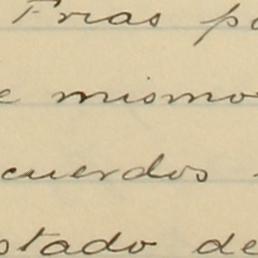 Frias p
e mismo
cuerdos
stado de